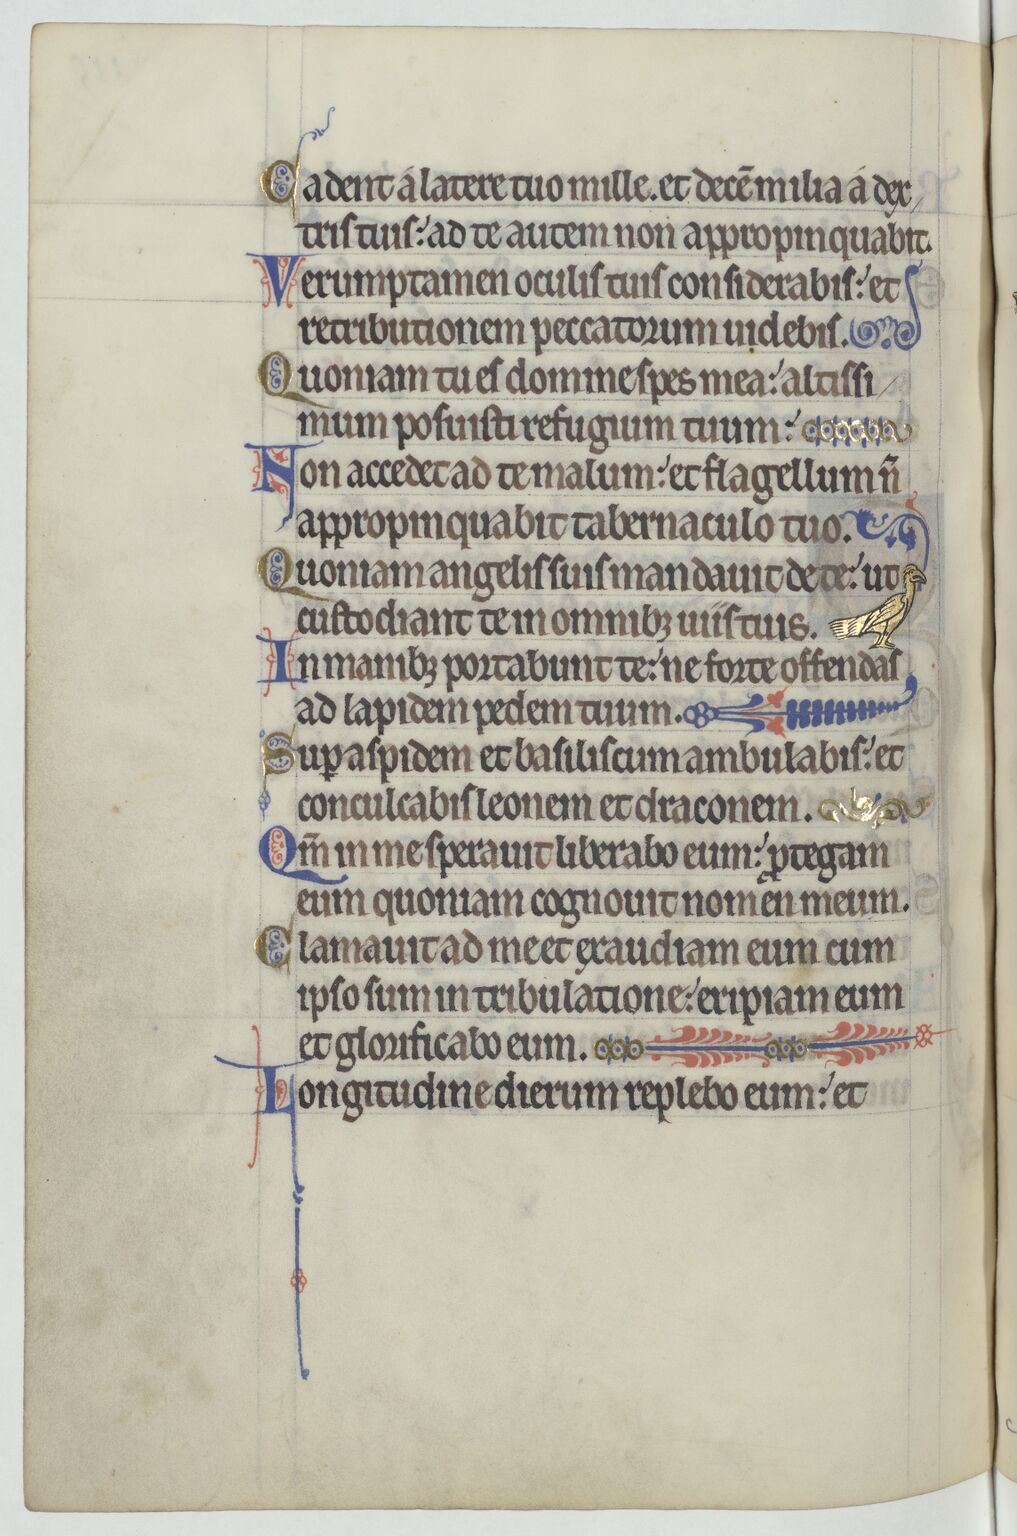 Cadent a latere tuo mille. et decē milia a dex
tris tuis: ad te autem non appropinquabit.
Verumptamen oculis tuis considerabis: et
retributionem peccatorum uidebis.
Quoniam tu es domine spes mea: altissi
mum posuisti refugium tuum:
Non accedet ad te malum: et flagellum n̄
appropinquabit tabernaculo tuo.
Quoniam angelis suis mandauit de te: ut
custodiant te in omnibꝫ uiis tuis.
In manibꝫ portabunt te: ne forte offendas
ad lapidem pedem tuum.
Suꝑ aspidem et basiliscum ambulabis: et
conculcabis leonem et draconem.
Qm̄ in me sperauit liberabo eum: ꝓtegam
eum quoniam cognouit nomen meum.
Clamauit ad me et exaudiam eum cum
ipso sum in tribulatione: eripiam eum
et glorificabo eum.
Longitudine dierum replebo eum: et